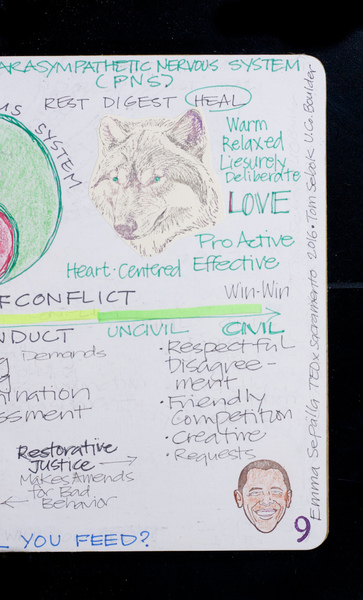 ARASYMPATHETIC NERVOUS SYSTEM
(PNS)
REST DIGEST HEAL
SYSTEM
Warm
Relaxed
Liesurely
Deliberate
LOVE
Pro Active
Heart-Centered Effective
FCONFLICT
Win-Win
NDUCT
UNCIVIL
CIVIL
g Demands
ination
ssment
• Respectful
Disagree-
ment
• Friendly
Competition
• Creative
• Requests
Restorative
JUSTICE →
Makes Amends
for Bad
← Behavior
L YOU FEED?
9
Emma Sepälla TEDx Sacramento 2016 • Tom Sebok U.Co. Boulder